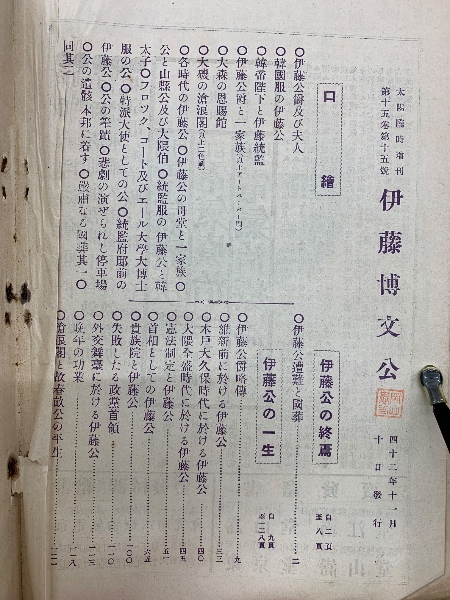 太陽臨時增刊
第十五卷第十五號
伊藤博文公
四十二年十一月
十日發行
口繪
〇伊藤公爵及び夫人
〇韓國服の伊藤公
〇韓帝陛下と伊藤統監
〇伊藤公爵と一家族
〇大森の恩賜館
〇大磯の滄浪閣
〇各時代の伊藤公〇伊藤公の母堂と一家族〇
公と山縣公及び大隈伯〇統監服の伊藤公と韓
太子〇フロック、コート及びエール大學大博士
服の公〇特派大使としての公〇統監府邸前の
伊藤公〇公の筆蹟〇悲劇の演ぜられし停車場
〇公の遺骸本邦に着す〇嚴肅なる國葬其一〇
同其二
伊藤公の終焉
自二頁
至八頁
〇伊藤公遭難と國葬……二
伊藤公の一生
自九頁
至一二八頁
〇伊藤公爵略傳……九
〇維新前に於ける伊藤公……三三
〇木戶大久保時代に於ける伊藤公……四〇
〇大隈全盛時代に於ける伊藤公……四五
〇憲法制定と伊藤公……五一
〇首相としての伊藤公……六五
〇貴族院と伊藤公……一〇〇
〇失敗したる政黨首領……一一〇
〇外交舞臺に於ける伊藤公……一一三
〇晩年の功業……一一八
〇滄浪閣と故春畝公の平生